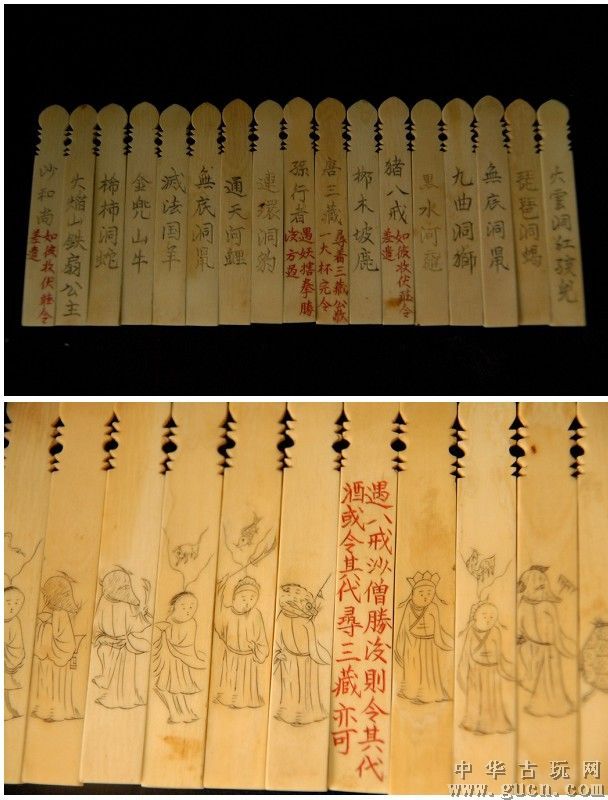 火雲洞紅孩兒
琵琶洞蝎
無底洞鼠
九曲洞獅
黑水河
猪八戒
如彼收伏
柳木坡鹿
唐三藏
尋着三藏公藏
一大杯完令
孫行者
遇妖揎拳勝
後方過
連環洞豹
通天河鯉
無底洞鼠
滅法国羊
金兜山牛
柿洞蛇
火焰山鉄扇公主
沙和尚
如彼收伏
遇八戒沙僧勝後則令其代
酒或令其代尋三藏亦可
中华古玩网
www.gucn.com